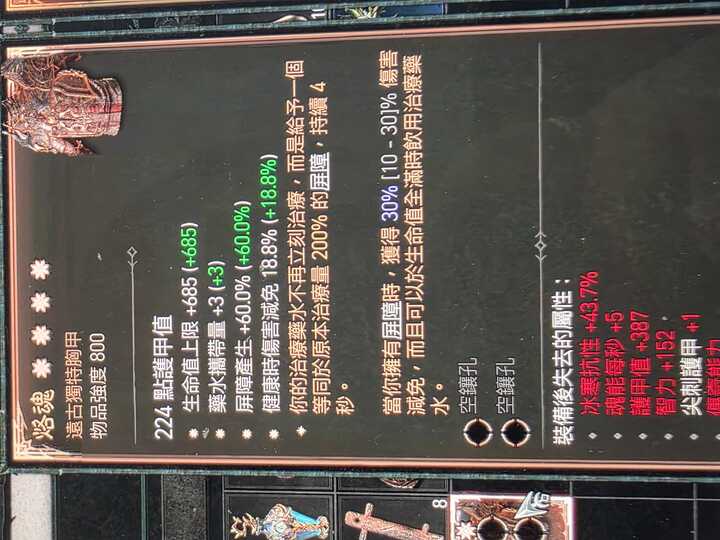 烙魂
遠古獨特胸甲
物品強度 800
224 點護甲值
生命值上限 +685 (+685)
藥水攜帶量 +3 (+3)
屏障產生 +60.0% (+60.0%)
健康時傷害減免 18.8% (+18.8%)
你的治療藥水不再立刻治療，而是給予一個
等同於原本治療量 200% 的屏障，持續 4
秒。
當你擁有屏障時，獲得 30% [10 - 30]% 傷害
減免，而且可以於生命值全滿時飲用治療藥
水。
空鑲孔
空鑲孔
裝備後失去的屬性：
冰寒抗性 +43.7%
魂能每秒 +5
護甲值 +387
智力 +152
尖刺護甲 +1
8